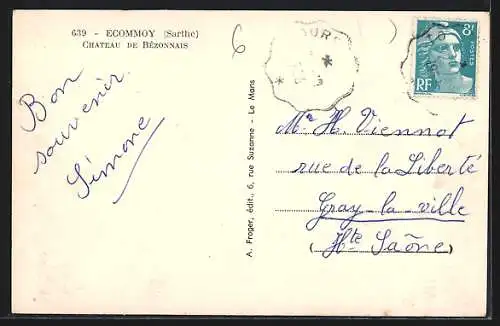 639 - ECOMMOY (Sarthe)
CHATEAU DE BÉZONNAIS
6
8F
POSTES
RF
Bon
souvenir
Simone
A. Froger, édit., 6, rue Suzanne - Le Mans
Mr H. Viennot
rue de la Liberté
Gray-la-ville
(Hte Saône)